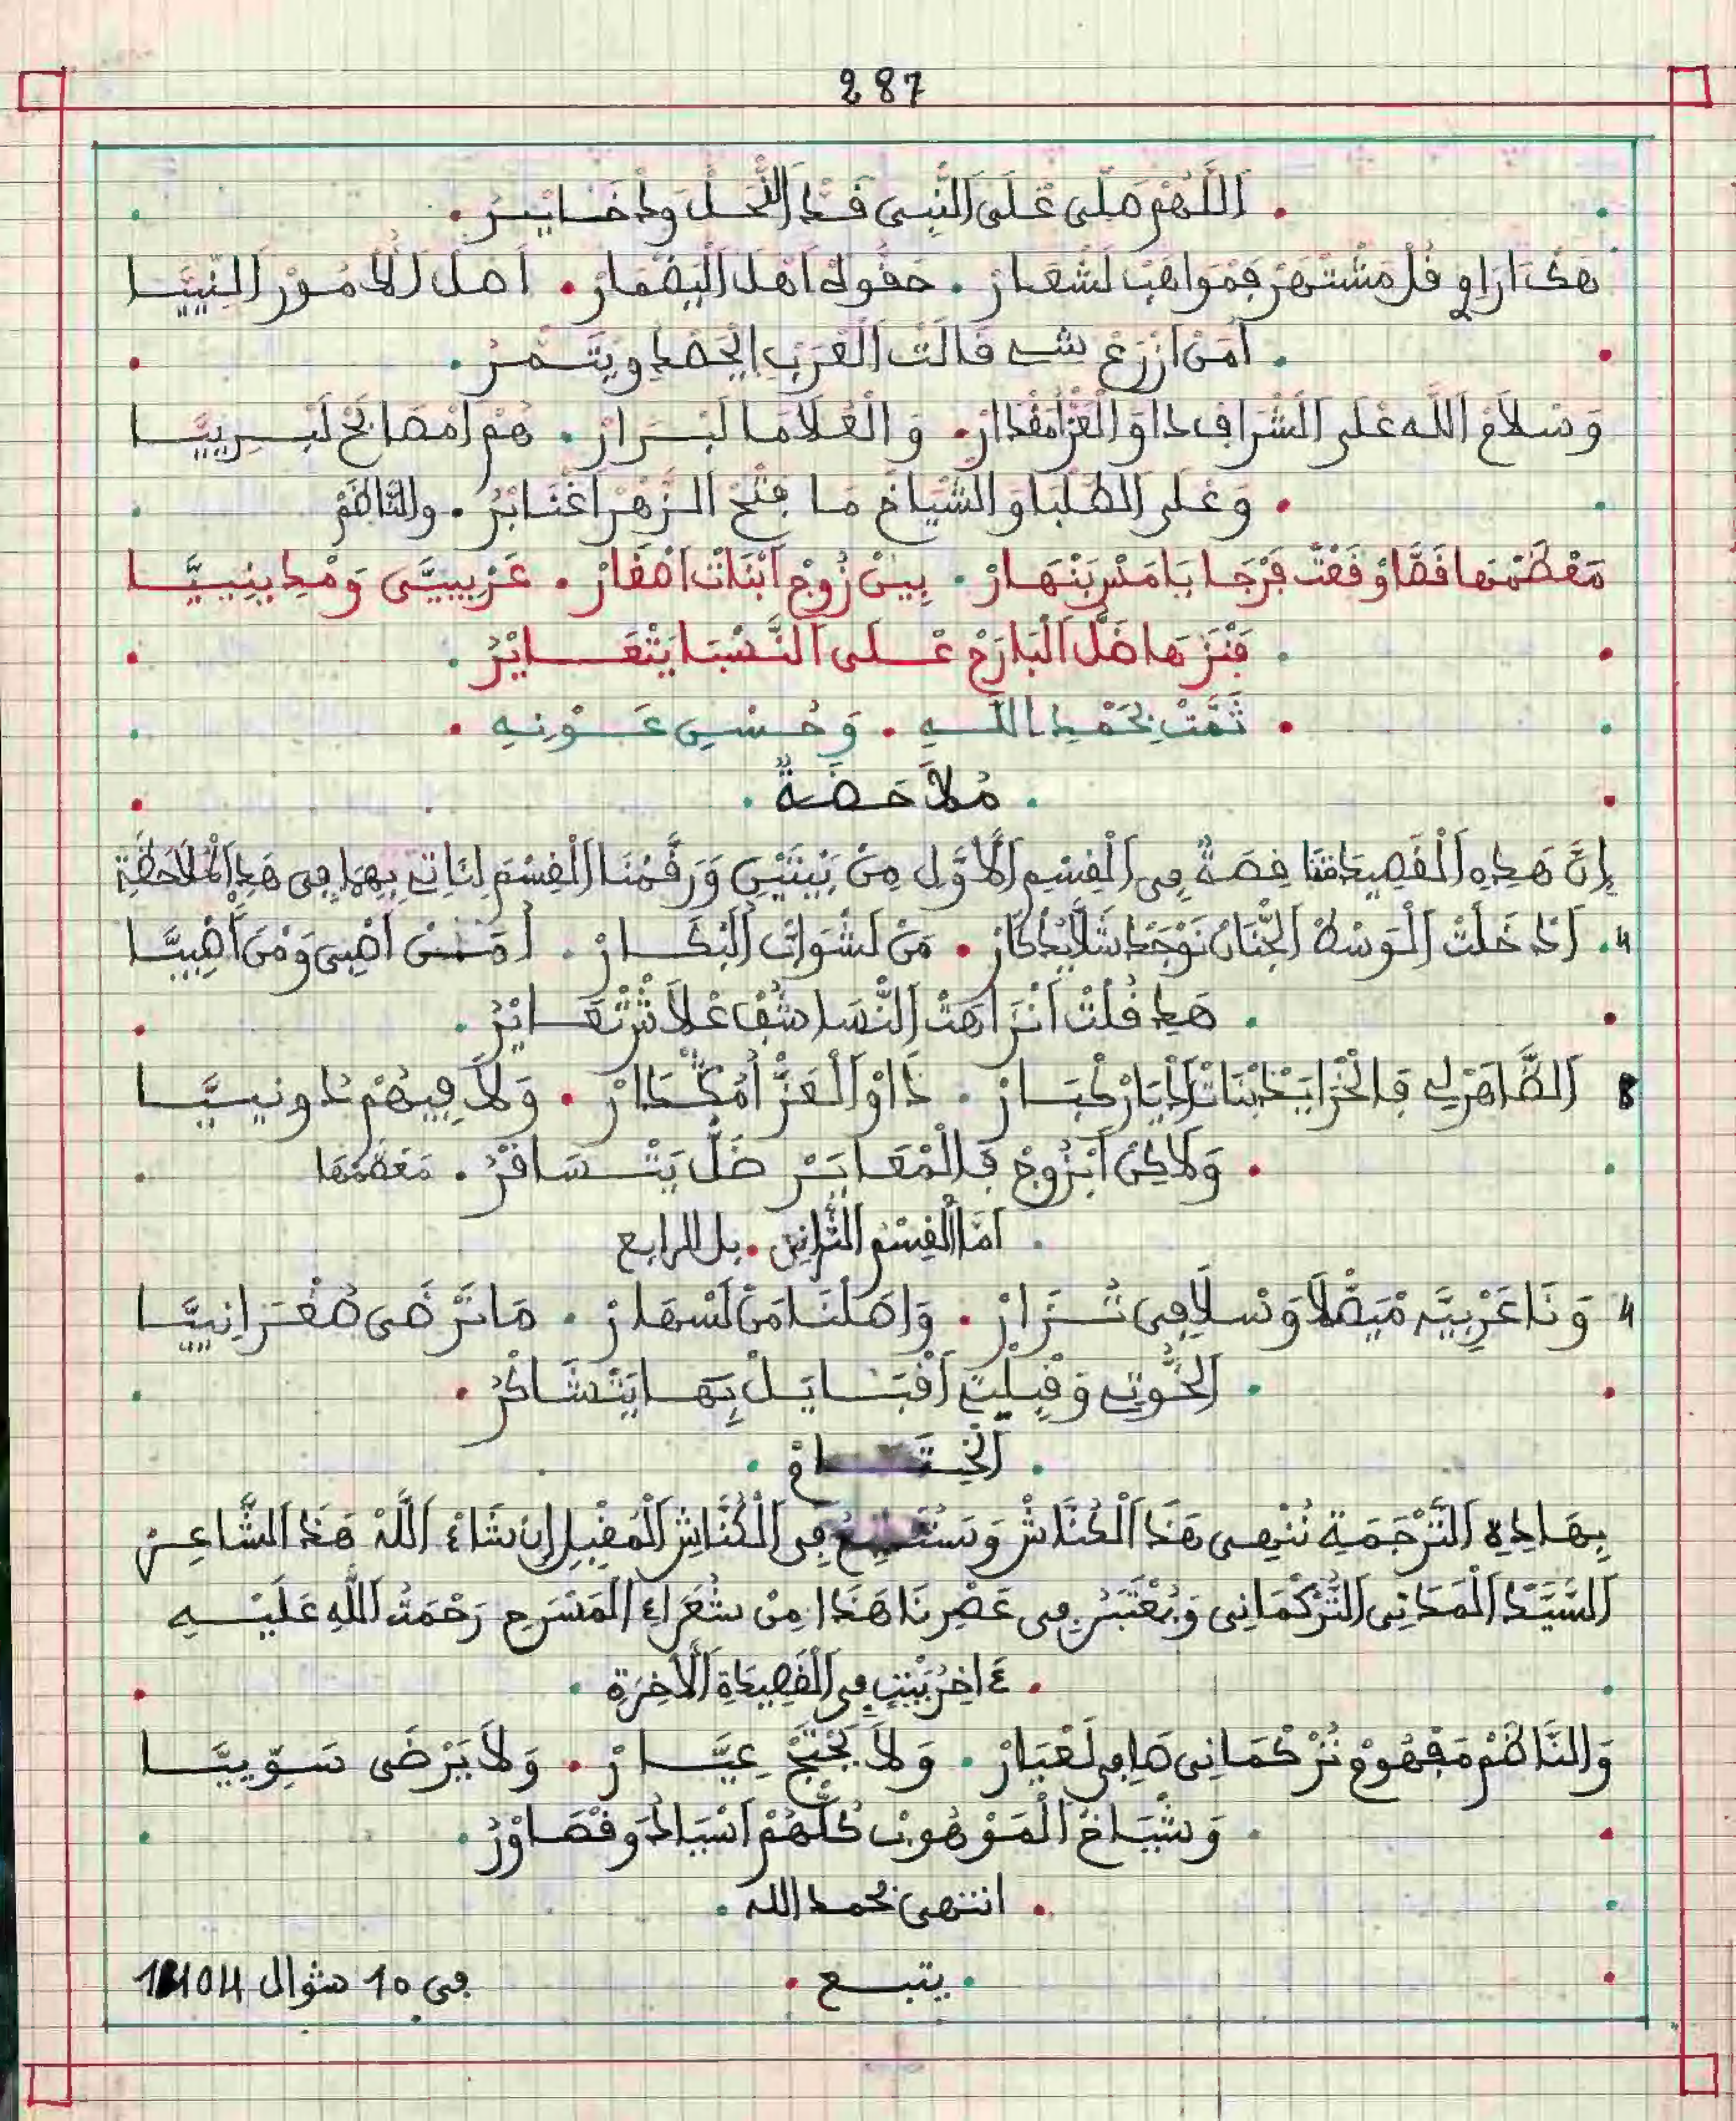 287
اَللَّهُمْ صَلِّى عْلَى اَلنّْبِى قَدّْ اَلنّْحَلْ وَاخَايَرْ
هَكْ ارَاوِ قُلْ مَشْتَهَرْ فِمْوَاهَبْ لَشْعَارْ . حَقُّولْ اَهْلْ اَلْيَضْمَارْ . اَصْلْ اَلاُمُورْ اَلنِّيَّا
اَمَنْ اَزْرَعْ شِي قَالَتْ اَلْعَرَبْ اِلْحَصْدُ وِيتَمَّرْ
وَسْلاَمْ اَللَّه عْلَى اَلشّْرَافْ دَاوْ اَلْعَزّْ اَمْقْدَارْ . وَالْعُلاَمَا لَبْرَارْ . هُمْ اَمْصَابَحْ لَبْرِيَّا
وَعْلَى اَلطَّلْبَا وَالشّْيَاخْ مَا فْتَحْ اَلزّْهَرْ اَغْنَابَرْ . وَالنَّاظَمْ
مَعْظَمْهَا قَصَّا وَقْعَتْ فَرْجَا يَامَسْ بَنْهَارْ . بِينْ زُوجْ اَبْنَاتْ اَصْغَارْ . عَرْبِيَّى وَمْدِينِيَّا
فَنْزَهَا ضَلّْ اَلْبَارَحْ عْلَى اَلنَّسْبَا يَتْعَايْرُ
تَمَّتْ بِحَمْدِ اللَّهِ . وَحُسْنِ عَوْنِهِ
مُلاَحَضَةٌ
إِنَّ هَذِهِ اَلْقَصِيدَة نَاقِصَةٌ فِى اَلْقِسْمِ اَلأَوَّلِ مِنْ بَيْتَيْنِ وَرَقَّمْنَا اَلْقِسْمَ لِنَاتِيَ بِهِمَا فِى هَذِهِ اَلْمُلاَحَظَةِ
4 . اَدْخَلْتْ اَلْوَسْطْ اَلجْنَانْ نَوْجَدْ شَلاَّ يَدْكَارْ . مَنْ لَشْوَاتْ اَلْبْكَارْ . اَمَنْ اَهْبِى وَمْنْ اَهْبِيَّا
هَدِ قُلْتْ اَنْزَاهَتْ اَلنّْسَا شُفْ عْلاَشْ تْعَايْرُ
8 اَلظَّاهَرْ لِي فَالْخْرَايَدْ بْنَاتْ اَلدّْيَارْ كْبَارْ . دَاوْ اَلْعَزّْ اَمْكْدَارْ . وَلاَ فِيهُمْ دُونِيَّا
وَلاَكِنْ اَبْزُوجْ فَالْمْعَايَرْ ضَلّْ يَتْسَافَرُ . مَعْظَمْهَا
اَمَّا اَلْقِسْمُ اَلثَّانِى . بل الرابع
4 وَنَا عَرْبِيَّه مْيَصّْلاَ وَسْلاَفِى نُزَّارْ . وَاصَلْنَا مَنْ لَسْهَارْ . مَا نَرْضَى صُفْرَانِيَّا
اَلخُّوتِي وَقْبِلْتِي اَقْبَايَلْ بِهَا يَتْشَاكَرُ
اَلْخِتَامْ
بِهَاذِهِ اَلتَّرْجَمَةِ نُنْهِى هَذَا اَلْكُنَّاشْ وَسَنُتَابِعُ فِى اَلْكُنَّاشِ اَلْمُقْبِلِ إِنْ شَاءَ اَللَّهْ هَذَا اَلشَّاعِرْ
اَلسَّيِّدْ اَلْمَدَانِى اَلتُّرْكْمَانِى وَيُعْتَبَرُ فِى عَصْرِنَا هَذَا مِنْ شُعَرَاءِ اَلْمَسْرَحِ رَحْمَتُ اَللَّهِ عَلَيْهِ
ءَاخِرُ بَيْتٍ فِى اَلْقَصِيدَةِ اَلأَخِرَةِ
وَالنَّاظَمْ مَفْهُومْ تُرْكْمَانِى صَافِى لَعْيَارْ . وَلاَ يَحْتَجّْ عِيَّارْ . وَلاَ يَرْضَى سَوِّيَّا
وَشْيَاخْ اَلْمَوْهُوبْ كُلّْهُمْ اَسْيَادْ وَقْصَاوَرُ
انتهى بحمد الله
يتبع
فى 10 شوال 1404